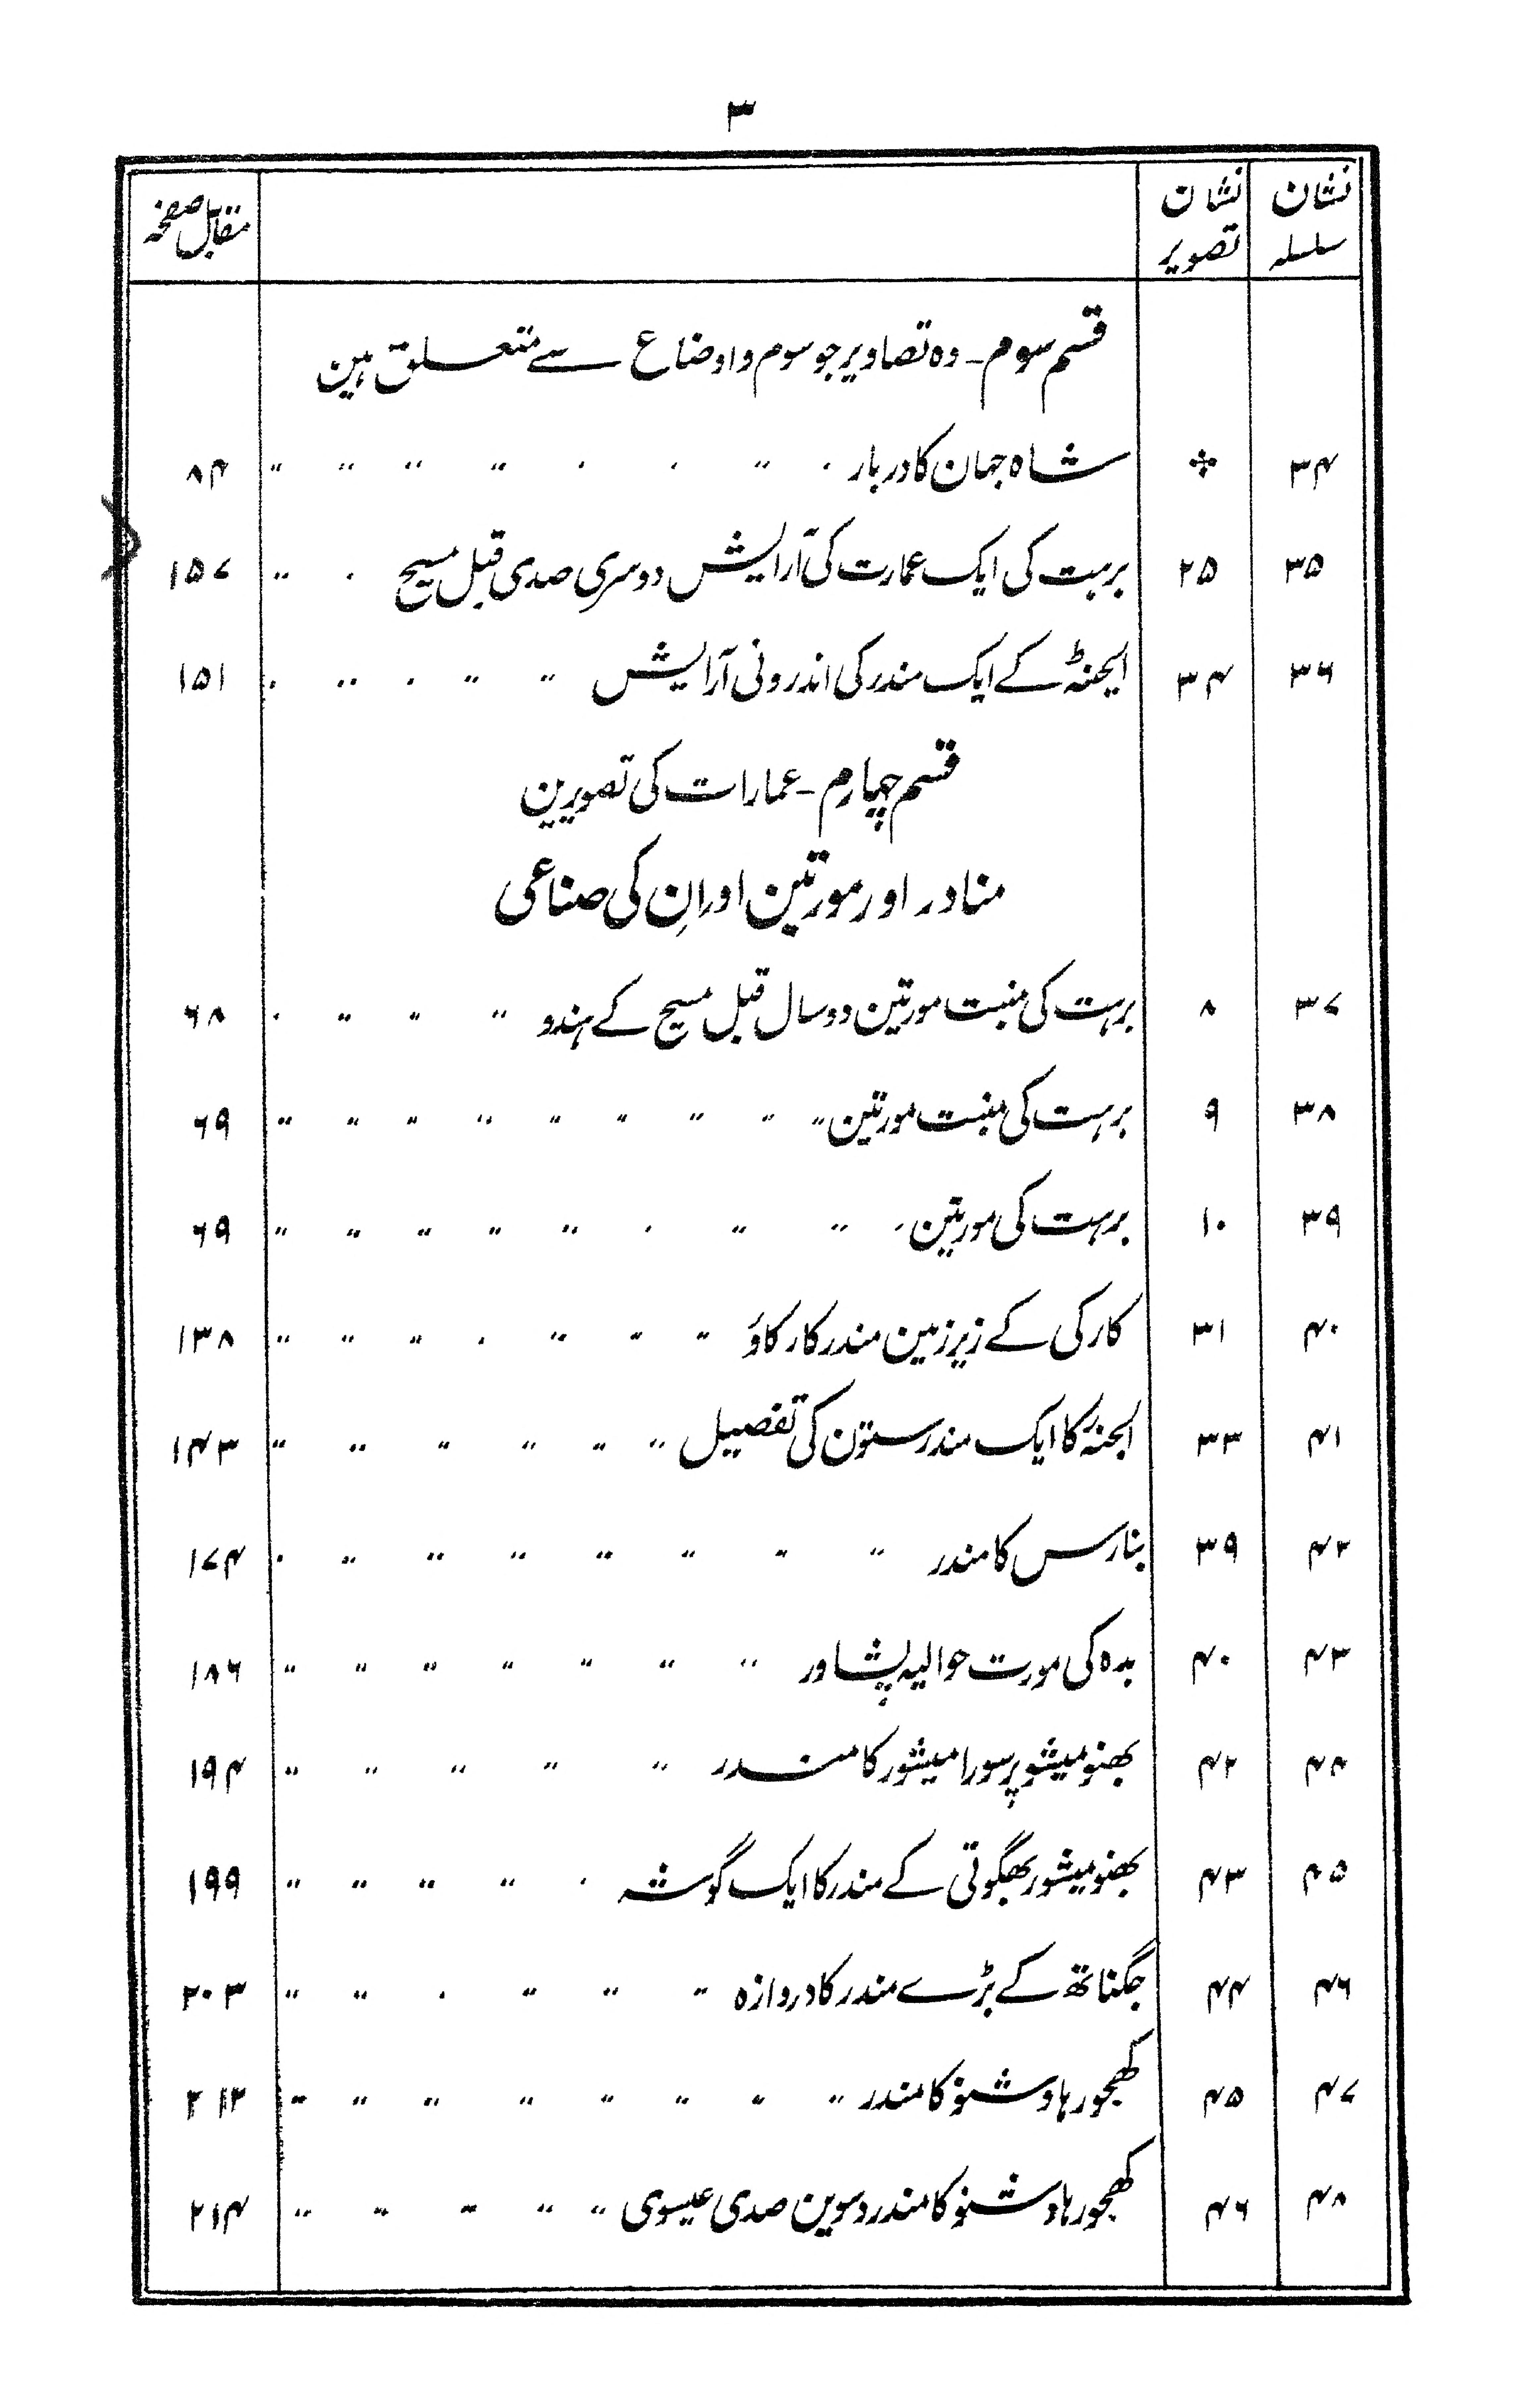 ۳
نشان سلسلہ | نشان تصویر | | مقابل صفحہ
قسم سوم - وہ تصاویر جو سوم و اوضاع سے متعلق ہین
۳۴ | ÷ | شاہ جہان کا دربار | ۸۴
۳۵ | ۲۵ | برہت کی ایک عمارت کی آرایش دوسری صدی قبل مسیح | ۱۵۷
۳۶ | ۳۴ | ایجنٹہ کے ایک مندر کی اندرونی آرایش | ۱۵۱
قسم چہارم - عمارات کی تصویرین
منادر اور مورتین اور اِن کی صناعی
۳۷ | ۸ | برہت کی منبت مورتین دو سال قبل مسیح کے ہندو | ۶۸
۳۸ | ۹ | برہت کی منبت مورتین | ۶۹
۳۹ | ۱۰ | برہت کی مورتین | ۶۹
۴۰ | ۳۱ | کارکی کے زیر زمین مندر کار کاؤ | ۱۳۸
۴۱ | ۳۳ | اجنٹہ کا ایک مندر ستون کی تفصیل | ۱۴۳
۴۲ | ۳۹ | بنارس کا مندر | ۱۷۴
۴۳ | ۴۰ | بدہ کی مورت حوالیہ پشاور | ۱۸۶
۴۴ | ۴۲ | بھنو میشو پرسورا میشور کا مندر | ۱۹۴
۴۵ | ۴۳ | بھنو میشور بھگوتی کے مندر کا ایک گوشہ | ۱۹۹
۴۶ | ۴۴ | جگناتھ کے بڑے مندر کا دروازہ | ۲۰۳
۴۷ | ۴۵ | کھجورہا وشنو کا مندر | ۲۱۲
۴۸ | ۴۶ | کھجورہا وشنو کا مندر دسوین صدی عیسوی | ۲۱۴